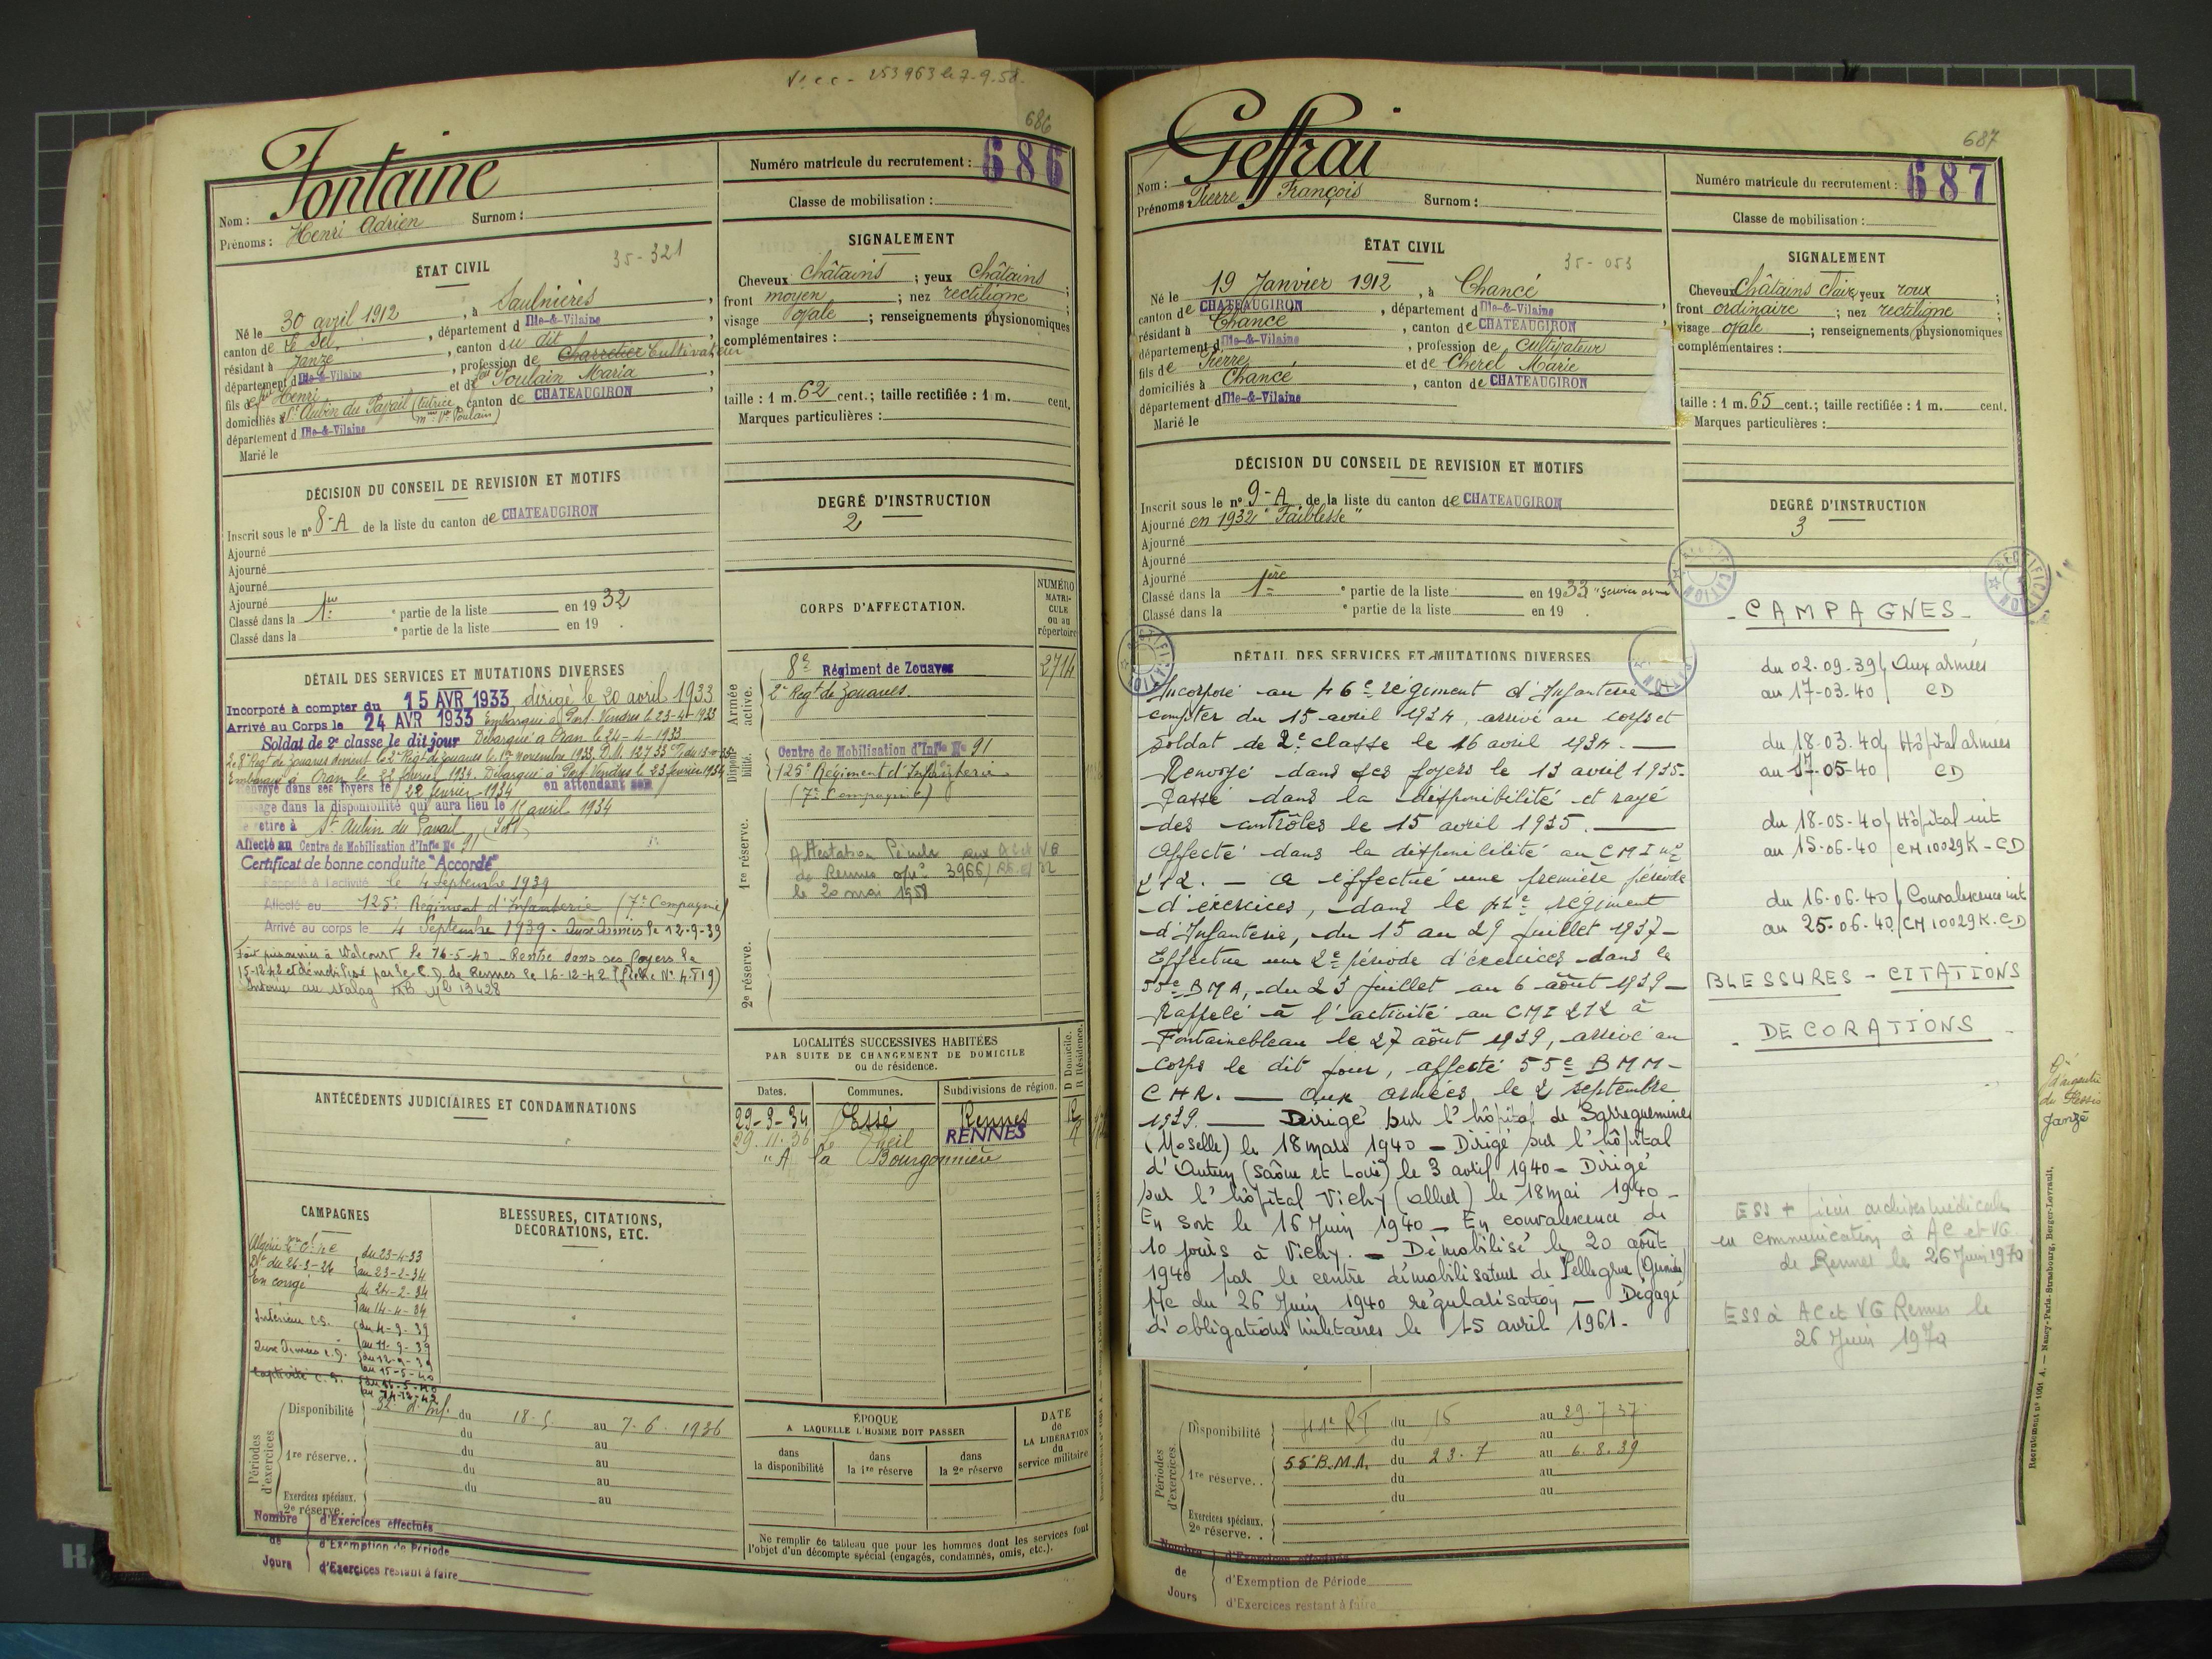 Vº c c - 253963 le 7-9-58
686
Fontaine
Nom :
Prénoms : Henri Adrien Surnom :
Numéro matricule du recrutement : 686
Classe de mobilisation :
35-321
ÉTAT CIVIL
Né le 30 avril 1912, à Saulnières,
canton de Le Sel, département d Ille-&-Vilaine,
résidant à Janzé, canton du dit,
département d Ille-&-Vilaine, profession de Charretier Cultivateur
fils de feu Henri et de feu Poulain Maria,
domiciliés à St Aubin du Pavail (tutrice mme Vve Poulain), canton de CHATEAUGIRON
département d Ille-&-Vilaine
Marié le
SIGNALEMENT
Cheveux Châtains ; yeux Châtains ;
front moyen ; nez rectiligne ;
visage ovale ; renseignements physionomiques
complémentaires :
taille : 1 m. 62 cent.; taille rectifiée : 1 m. cent.
Marques particulières :
DÉCISION DU CONSEIL DE REVISION ET MOTIFS
Inscrit sous le nº 8-A de la liste du canton de CHATEAUGIRON
Ajourné
Ajourné
Ajourné
Ajourné
Classé dans la 1re e partie de la liste en 1932
Classé dans la e partie de la liste en 19 .
DEGRÉ D'INSTRUCTION
2
DÉTAIL DES SERVICES ET MUTATIONS DIVERSES
Incorporé à compter du 15 AVR 1933 dirigé le 20 avril 1933
Arrivé au Corps le 24 AVR 1933 Embarqué à Port-Vendres le 23-4-1933
Soldat de 2e classe le dit jour Débarqué à Oran le 24-4-1933
Le 8e Regt de Zouaves devient le 2e Regt de Zouaves le 1er novembre 1933. D.M. 12733
Embarqué à Oran le 22 février 1934. Débarqué à Port Vendres le 23 février 1934
Renvoyé dans ses foyers le 22 février 1934 en attendant son
passage dans la disponibilité qui aura lieu le 15 avril 1934
Se retire à St Aubin du Pavail (I&V)
Affecté au Centre de Mobilisation d'Infie Nº 91
Certificat de bonne conduite "Accordé"
Rappelé à l'activité le 4 Septembre 1939
Affecté au 125e Régiment d'Infanterie (7e Compagnie)
Arrivé au corps le 4 Septembre 1939. Aux Armées le 12-9-39
Fait prisonnier à Walcourt le 16-5-40 - Rentré dans ses foyers le
15-12-42 et démobilisé par le C.D. de Rennes le 16-12-42 (fiche Nº 4.719)
Interné au stalag Mle 13428
CORPS D'AFFECTATION.
NUMÉRO MATRICULE ou au répertoire
Armée active.
8e Régiment de Zouaves 2714
2e Regt de Zouaves.
Disponibilité.
Centre de Mobilisation d'Infie Nº 91
125e Régiment d'Infanterie
(7e Compagnie)
1re réserve.
Attestation aux A C et VG
de Rennes 3966/
le 20 mai 1958
2e réserve.
ANTÉCÉDENTS JUDICIAIRES ET CONDAMNATIONS
LOCALITÉS SUCCESSIVES HABITÉES
PAR SUITE DE CHANGEMENT DE DOMICILE
ou de résidence.
Dates. Communes. Subdivisions de région. D Domicile. R Résidence.
29-9-34 Essé Rennes R
29.11.36 Le Theil RENNES R
"A la Bourgonnière
CAMPAGNES
Algérie du 23-4-33
Dt du 26-3-24 au 23-2-34
En congé du 24-2-34
au 14-4-34
Intérieur C.S. du 4-9-39
au 11-9-39
Aux Armées C.D. du 12-9-39
au 15-5-40
Captivité C.S. du 16-5-40
au 14-12-42
BLESSURES, CITATIONS,
DÉCORATIONS, ETC.
Périodes d'exercices
Disponibilité 32e d'Inf. du 18-5 au 7-6 1936
du au
1re réserve.. du au
du au
du au
Exercices spéciaux.
2e réserve. . au
Nombre de Jours
d'Exercices effectués
d'Exemption de Période
d'Exercices restant à faire
ÉPOQUE
A LAQUELLE L'HOMME DOIT PASSER
dans la disponibilité
dans la 1re réserve
dans la 2e réserve
DATE de LA LIBÉRATION du service militaire
Ne remplir ce tableau que pour les hommes dont les services font
l'objet d'un décompte spécial (engagés, condamnés, omis, etc.).
687
Geffrai
Nom :
Prénoms : Pierre François Surnom :
Numéro matricule du recrutement : 687
Classe de mobilisation :
ÉTAT CIVIL
35-053
Né le 19 Janvier 1912, à Chancé
canton de CHATEAUGIRON, département d Ille-&-Vilaine,
résidant à Chancé, canton de CHATEAUGIRON
département d Ille-&-Vilaine, profession de Cultivateur
fils de Pierre et de Cherel Marie
domiciliés à Chancé, canton de CHATEAUGIRON
département d Ille-&-Vilaine
Marié le
SIGNALEMENT
Cheveux Châtains clairs yeux roux ;
front ordinaire ; nez rectiligne ;
visage ovale ; renseignements physionomiques
complémentaires :
taille : 1 m. 65 cent.; taille rectifiée : 1 m. cent.
Marques particulières :
DÉCISION DU CONSEIL DE REVISION ET MOTIFS
Inscrit sous le nº 9-A de la liste du canton de CHATEAUGIRON
Ajourné en 1932 "Faiblesse"
Ajourné
Ajourné
Ajourné
Classé dans la 1ère e partie de la liste en 1933 "Service armé"
Classé dans la e partie de la liste en 19 .
DEGRÉ D'INSTRUCTION
3
RECTIFICATION
DÉTAIL DES SERVICES ET MUTATIONS DIVERSES
Incorporé au 46e régiment d'Infanterie à
compter du 15 avril 1934, arrivé au corps et
Soldat de 2e classe le 16 avril 1934. —
Renvoyé dans ses foyers le 13 avril 1935.
Passé dans la disponibilité et rayé
des contrôles le 15 avril 1935. —
Affecté dans la disponibilité au CMI nº
212. — A effectué une première période
d'exercices, dans le régiment
d'Infanterie, du 15 au 29 juillet 1937 -
Effectue une 2e période d'exercices dans le
55e BMA, du 23 juillet au 6 août 1939 -
Rappelé à l'activité au CMI 212 à
Fontainebleau le 27 août 1939, arrivé au
Corps le dit jour, affecté 55e BMM -
CHR. — Aux armées le 2 septembre
1939. — Dirigé sur l'hôpital de Sarreguemines
(Moselle) le 18 mars 1940 - Dirigé sur l'hôpital
d'Autun (Saône et Loire) le 3 avril 1940 - Dirigé
sur l'hôpital Vichy (Allier) le 18 mai 1940 -
En sort le 16 Juin 1940 - En convalescence de
10 jours à Vichy. - Démobilisé le 20 août
1940 par le centre démobilisateur de Pellegrue (Gironde)
Mc du 26 Juin 1940 régularisation - Dégagé
d'obligations militaires le 15 avril 1961.
- CAMPAGNES -
du 02-09-39 Aux armées
au 17-03-40 CD
du 18-03-40 Hôpital armées
au 17-05-40 CD
du 18-05-40 Hôpital int
au 15-06-40 CM 10029K - CD
du 16-06-40 Convalescence int
au 25-06-40 CM 10029K. CD
BLESSURES - CITATIONS
- DECORATIONS -
d'argentré
du Plessis
Janzé
ESS + pièces archives médicales
en communication à AC et VG
de Rennes le 26 Juin 1970
ESS à AC et VG Rennes le
26 Juin 1970
Périodes d'exercices.
Disponibilité 41e RI du 15 au 29.7 37
du au
1re réserve. . 55e B.M.A. du 23.7 au 6.8.39
du au
du au
Exercices spéciaux.
2e réserve. .
Nombre de Jours
d'Exercices effectués
d'Exemption de Période
d'Exercices restant à faire
Recrutement nº 1061 A. — Nancy-Paris-Strasbourg, Berger-Levrault,